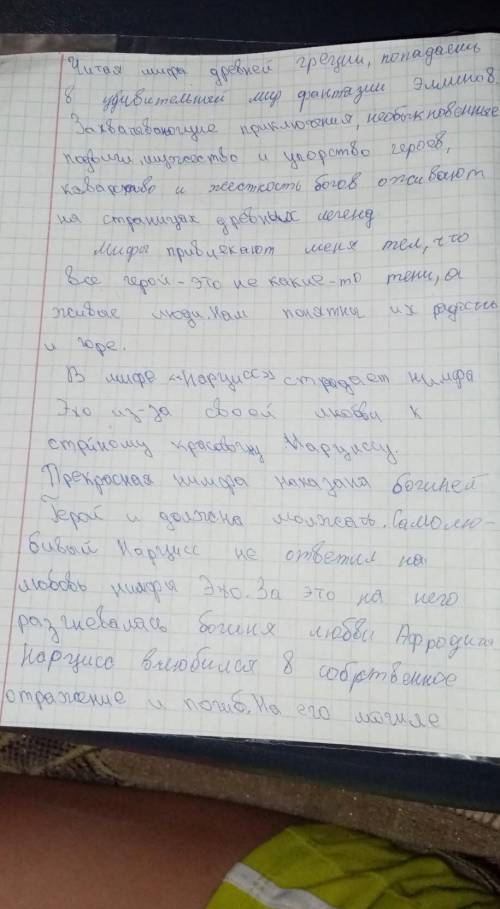 Читая мифы древней греции, попадаешь
в удивительней мир фантазии Эллинов.
Захватавающие приключения, необыкновенные
подвиги, мужество и упорство героев,
коварство и жесткость богов оживают
на страницах древных легенд
Мифы привлекают меня тем, что
все герой - это не какие-то тени, а
живые люди. Нам понятны их радость
и горе.
В мифе «Нарцисс» страдает нимфа
Эхо из-за своей любви к
стрйному красавцу Нарциссу.
Прекрасная нимфа наказана богиней
Герой и должна молжать. Самолю-
бивый Нарцисс не ответил на
любовь нимфы Эхо. За это на него
разгневалась богиня любви Афродита
Нарцисс влюбился в собственное
отражение и погиб. На его могиле